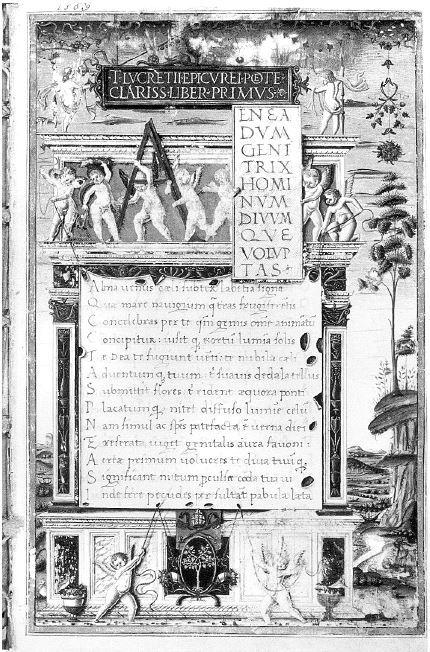 1569
T·LVCRETII·EPICVREI·POTE
CLARISS·LIBER·PRIMVS·
A
ENEA
DVM
GENI
TRIX
HOMI
NVM
DIVVM
QVE
VOLVP
TAS
Alma venus cæli subter labẽtia signa
Quae mare navigerum q̃ terras frugiferẽtis
Concelebras per te qm̃ genus omẽ animãtũ
Concipitur: visit q; exortũ lumĩa solis
Te Dea te fugiunt venti: te nubila cæli
Adventum q; tuum: t̃ suavis dedala tellus
Submittit flores: t̃ rident æquora ponti
Placatum q; nitet diffuso lumĩe cælũ
Nam simul ac sp̃es patefacta ẽ verna diei
Et reserata viget genitalis aura favoni:
Aeriæ primum volucres te diva tuũ q;
Significant initum p̃culsæ corda tua vi
Inde feræ pecudes persultãt pabula læta